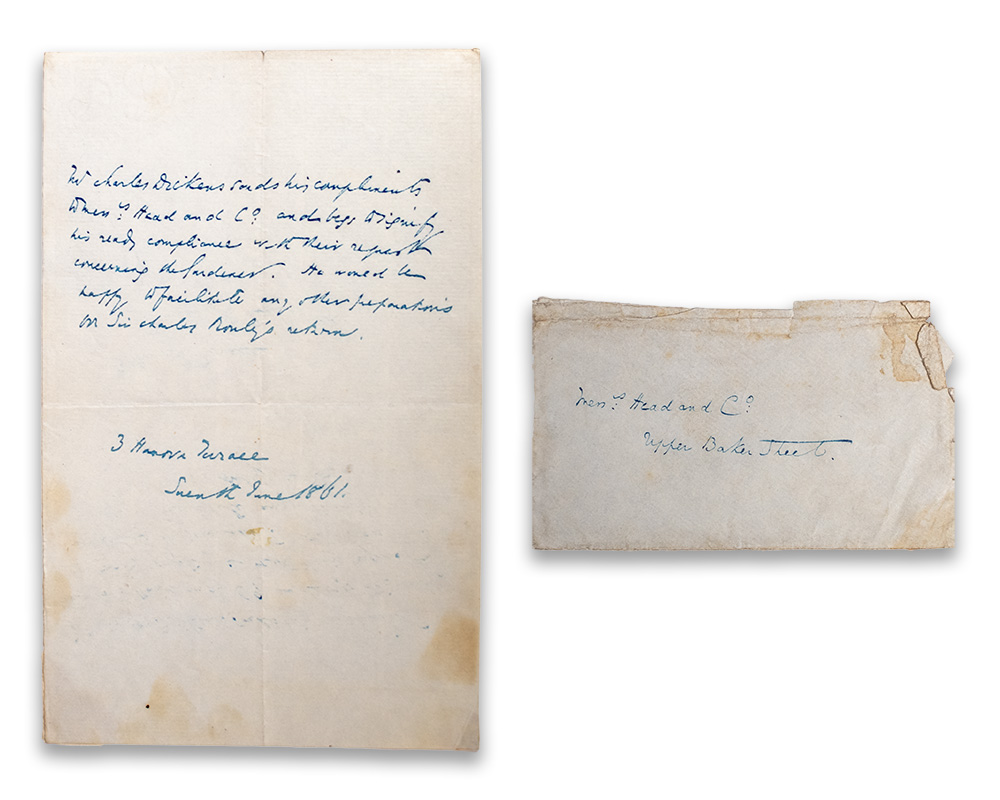 Mr Charles Dickens sends his compliments
to Messrs Head and Co. and begs to signify
his ready compliance with their request
concerning the Gardener. He would be
happy to facilitate any other preparations
for Sir Charles Rowley's return.
3 Hanover Terrace
Seventh June 1861.
Messrs Head and Co.
Upper Baker Street.